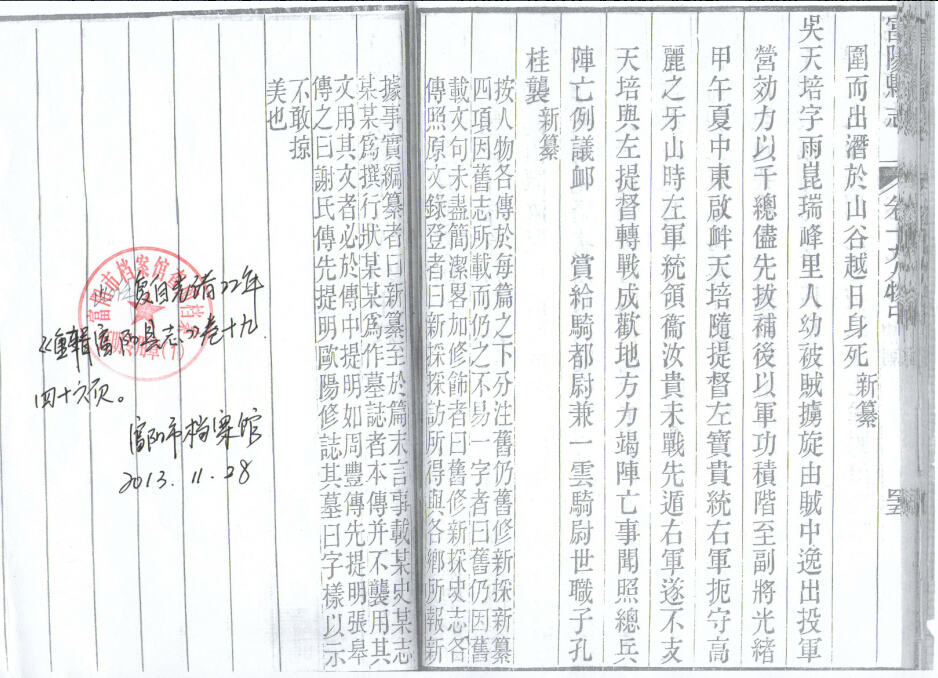 富陽縣志
卷十九人物中
圍而出潛於山谷越日身死 新纂
吳天培字雨崑瑞峰里人幼被賊擄旋由賊中逸出投軍
營効力以千總儘先拔補後以軍功積階至副將光緒
甲午夏中東啟衅天培隨提督左寶貴統右軍扼守高
麗之牙山時左軍統領衞汝貴未戰先遁右軍遂不支
天培與左提督轉戰成歡地方力竭陣亡事聞照總兵
陣亡例議衂 賞給騎都尉兼一雲騎尉世職子孔
桂襲 新纂
按人物各傳於每篇之下分注舊仍舊修新採新纂
四項因舊志所載而仍之不易一字者曰舊仍因舊
載文句未盡簡潔畧加修飾者曰舊修新採史志各
傳照原文錄登者曰新採採訪所得與各鄉所報新
據事實編纂者曰新纂至於篇末言事載某史某志
某某爲撰行狀某某爲作墓誌者本傳并不襲用其
文用其文者必於傳中提明如周豐傳先提明張舉
傳之曰謝氏傳先提明歐陽修誌其墓曰字樣以示
不敢掠
美也
复自光绪22年
《重辑富阳县志》卷十九
四十六页。
富阳市档案馆
2013.11.28
富阳市档案馆
(1)